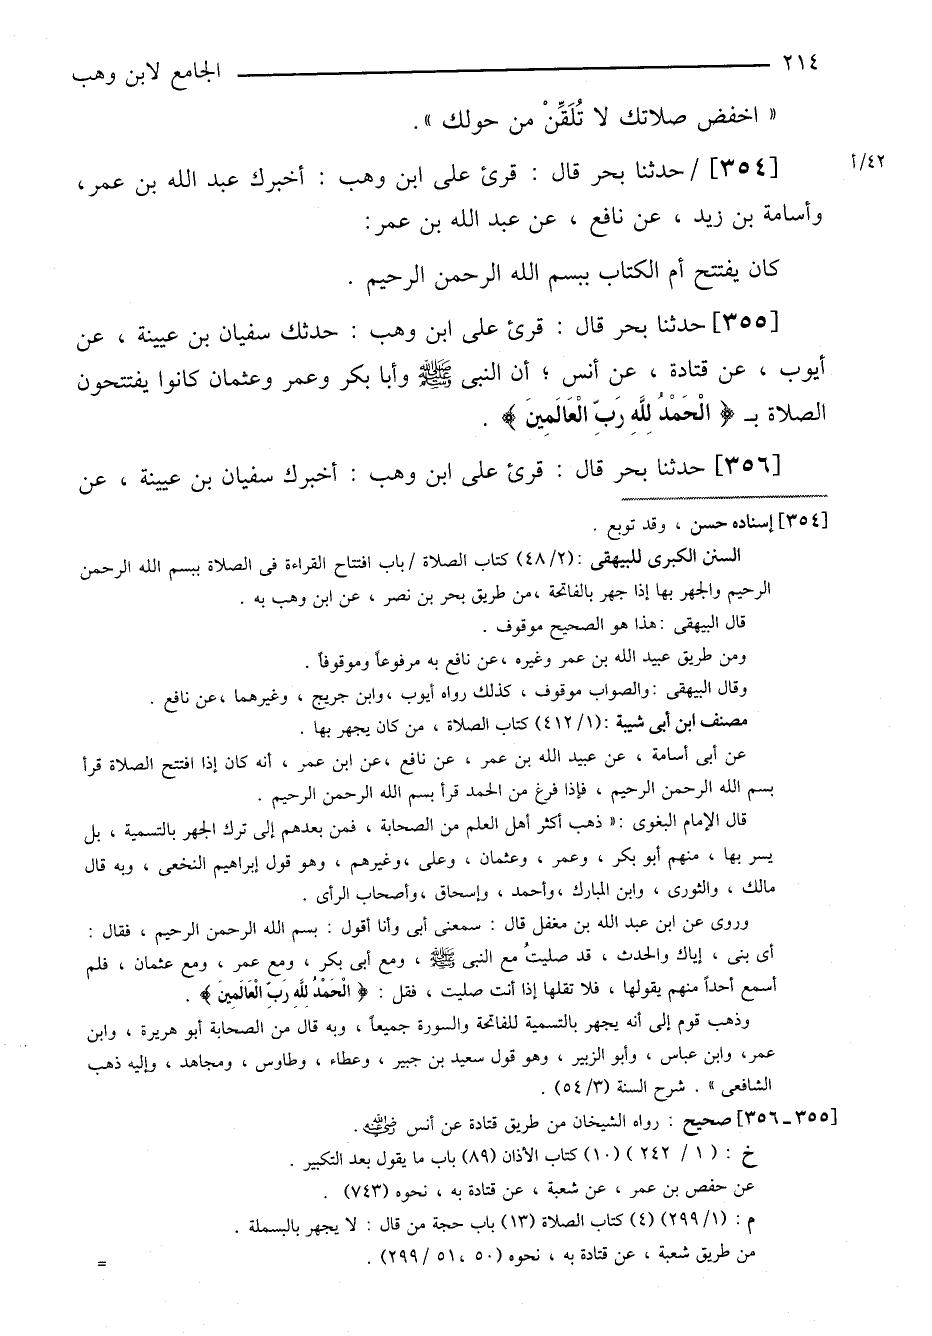 ٢١٤ الجامع لابن وهب
« اخفض صلاتك لا تُلَقِّنْ من حولك » .
٤٢/أ
[٣٥٤] / حدثنا بحر قال : قرئ على ابن وهب : أخبرك عبد الله بن عمر ،
وأسامة بن زيد ، عن نافع ، عن عبد الله بن عمر :
كان يفتتح أم الكتاب ببسم الله الرحمن الرحيم .
[٣٥٥] حدثنا بحر قال : قرئ على ابن وهب : حدثك سفيان بن عيينة ، عن
أيوب ، عن قتادة ، عن أنس ؛ أن النبى ﷺ وأبا بكر وعمر وعثمان كانوا يفتتحون
الصلاة بـ ﴿ الْحَمْدُ لِلَّهِ رَبِّ الْعَالَمِينَ ﴾ .
[٣٥٦] حدثنا بحر قال : قرئ على ابن وهب : أخبرك سفيان بن عيينة ، عن
[٣٥٤] إسناده حسن ، وقد توبع .
السنن الكبرى للبيهقى : (٤٨/٢) كتاب الصلاة / باب افتتاح القراءة فى الصلاة ببسم الله الرحمن
الرحيم والجهر بها إذا جهر بالفاتحة ، من طريق بحر بن نصر ، عن ابن وهب به .
قال البيهقى : هذا هو الصحيح موقوف .
ومن طريق عبيد الله بن عمر وغيره ، عن نافع به مرفوعاً وموقوفاً .
وقال البيهقى : والصواب موقوف ، كذلك رواه أيوب ، وابن جريج ، وغيرهما ، عن نافع .
مصنف ابن أبى شيبة : (٤١٢/١) كتاب الصلاة ، من كان يجهر بها .
عن أبى أسامة ، عن عبيد الله بن عمر ، عن نافع ، عن ابن عمر ، أنه كان إذا افتتح الصلاة قرأ
بسم الله الرحمن الرحيم ، فإذا فرغ من الحمد قرأ بسم الله الرحمن الرحيم .
قال الإمام البغوى : « ذهب أكثر أهل العلم من الصحابة ، فمن بعدهم إلى ترك الجهر بالتسمية ، بل
يسر بها ، منهم أبو بكر ، وعمر ، وعثمان ، وعلى ، وغيرهم ، وهو قول إبراهيم النخعى ، وبه قال
مالك ، والثورى ، وابن المبارك ، وأحمد ، وإسحاق ، وأصحاب الرأى .
وروى عن ابن عبد الله بن مغفل قال : سمعنى أبى وأنا أقول : بسم الله الرحمن الرحيم ، فقال :
أى بنى ، إياك والحدث ، قد صليتُ مع النبى ﷺ ، ومع أبى بكر ، ومع عمر ، ومع عثمان ، فلم
أسمع أحداً منهم يقولها ، فلا تقلها إذا أنت صليت ، فقل : ﴿ الْحَمْدُ لِلَّهِ رَبِّ الْعَالَمِينَ ﴾ .
وذهب قوم إلى أنه يجهر بالتسمية للفاتحة والسورة جميعاً ، وبه قال من الصحابة أبو هريرة ، وابن
عمر، وابن عباس ، وأبو الزبير ، وهو قول سعيد بن جبير ، وعطاء ، وطاوس ، ومجاهد ، وإليه ذهب
الشافعى » . شرح السنة (٥٤/٣) .
[٣٥٥ـ٣٥٦] صحيح : رواه الشيخان من طريق قتادة عن أنس رضي الله عنه .
خ : ( ١ / ٢٤٢ ) (١٠) كتاب الأذان (٨٩) باب ما يقول بعد التكبير .
عن حفص بن عمر ، عن شعبة ، عن قتادة به ، نحوه (٧٤٣) .
م : (٢٩٩/١) (٤) كتاب الصلاة (١٣) باب حجة من قال : لا يجهر بالبسملة .
من طريق شعبة ، عن قتادة به ، نحوه (٥٠ ، ٥١ / ٢٩٩) .
=